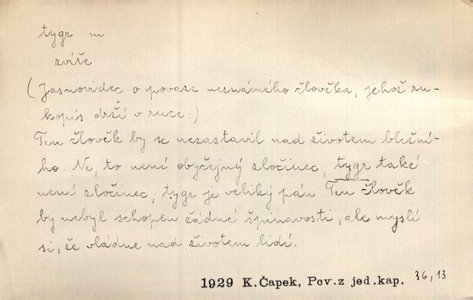 tygr m
zvíře
(Jasnovidec o povaze neznámého člověka, jehož ru-
kopis drží v ruce.)
Ten člověk by se nezastavil nad životem bližní-
ho. Ne, to není obyčejný zločinec, tygr také
není zločinec, tygr je veliký pán. Ten člověk
by nebyl schopen žádné špinavosti, ale myslí
si, že vládne nad životem lidí.
1929 K.Čapek, Pov.z jed.kap. 36,13